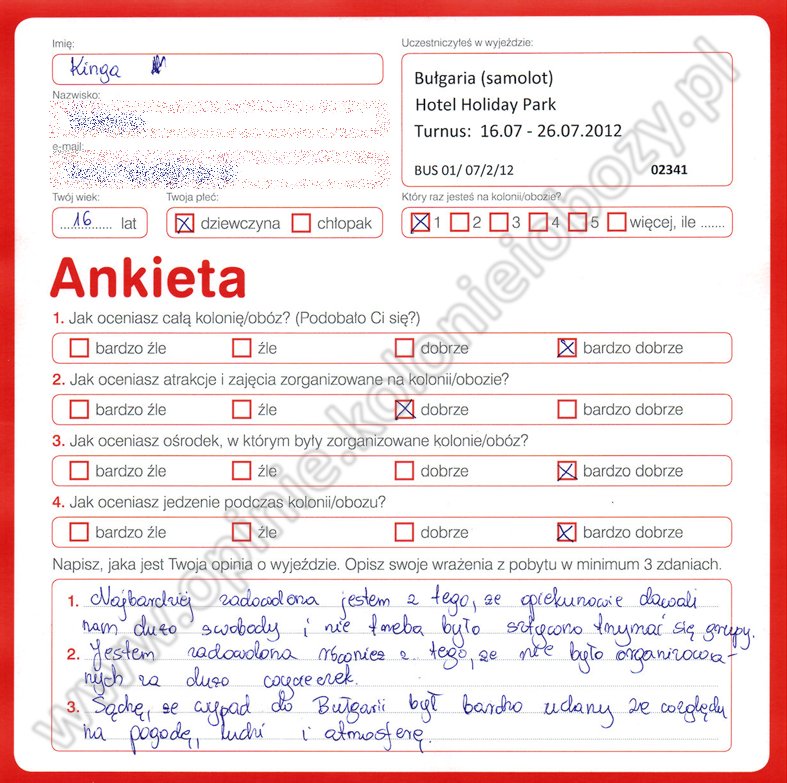 Imię:
Kinga
Uczestniczyłeś w wyjeździe:
Bułgaria (samolot)
Hotel Holiday Park
Turnus: 16.07 - 26.07.2012
BUS 01/ 07/2/12 02341
Nazwisko:
e-mail:
Twój wiek: Twoja płeć: Który raz jesteś na kolonii/obozie?
16 lat dziewczyna chłopak 1 2 3 4 5 więcej, ile .......
Ankieta
1. Jak oceniasz całą kolonię/obóz? (Podobało Ci się?)
bardzo źle źle dobrze bardzo dobrze
2. Jak oceniasz atrakcje i zajęcia zorganizowane na kolonii/obozie?
bardzo źle źle dobrze bardzo dobrze
3. Jak oceniasz ośrodek, w którym były zorganizowane kolonie/obóz?
bardzo źle źle dobrze bardzo dobrze
4. Jak oceniasz jedzenie podczas kolonii/obozu?
bardzo źle źle dobrze bardzo dobrze
Napisz, jaka jest Twoja opinia o wyjeździe. Opisz swoje wrażenia z pobytu w minimum 3 zdaniach.
1. Najbardziej zadowolona jestem z tego, że opiekunowie dawali
nam dużo swobody i nie trzeba było sztywno trzymać się grupy.
2. Jestem zadowolona również z tego, że nie było organizowa-
nych za dużo wycieczek.
3. Sądzę, że wypad do Bułgarii był bardzo udany ze względu
na pogodę, ludzi i atmosferę.
www.opinie.kolonieiobozy.pl